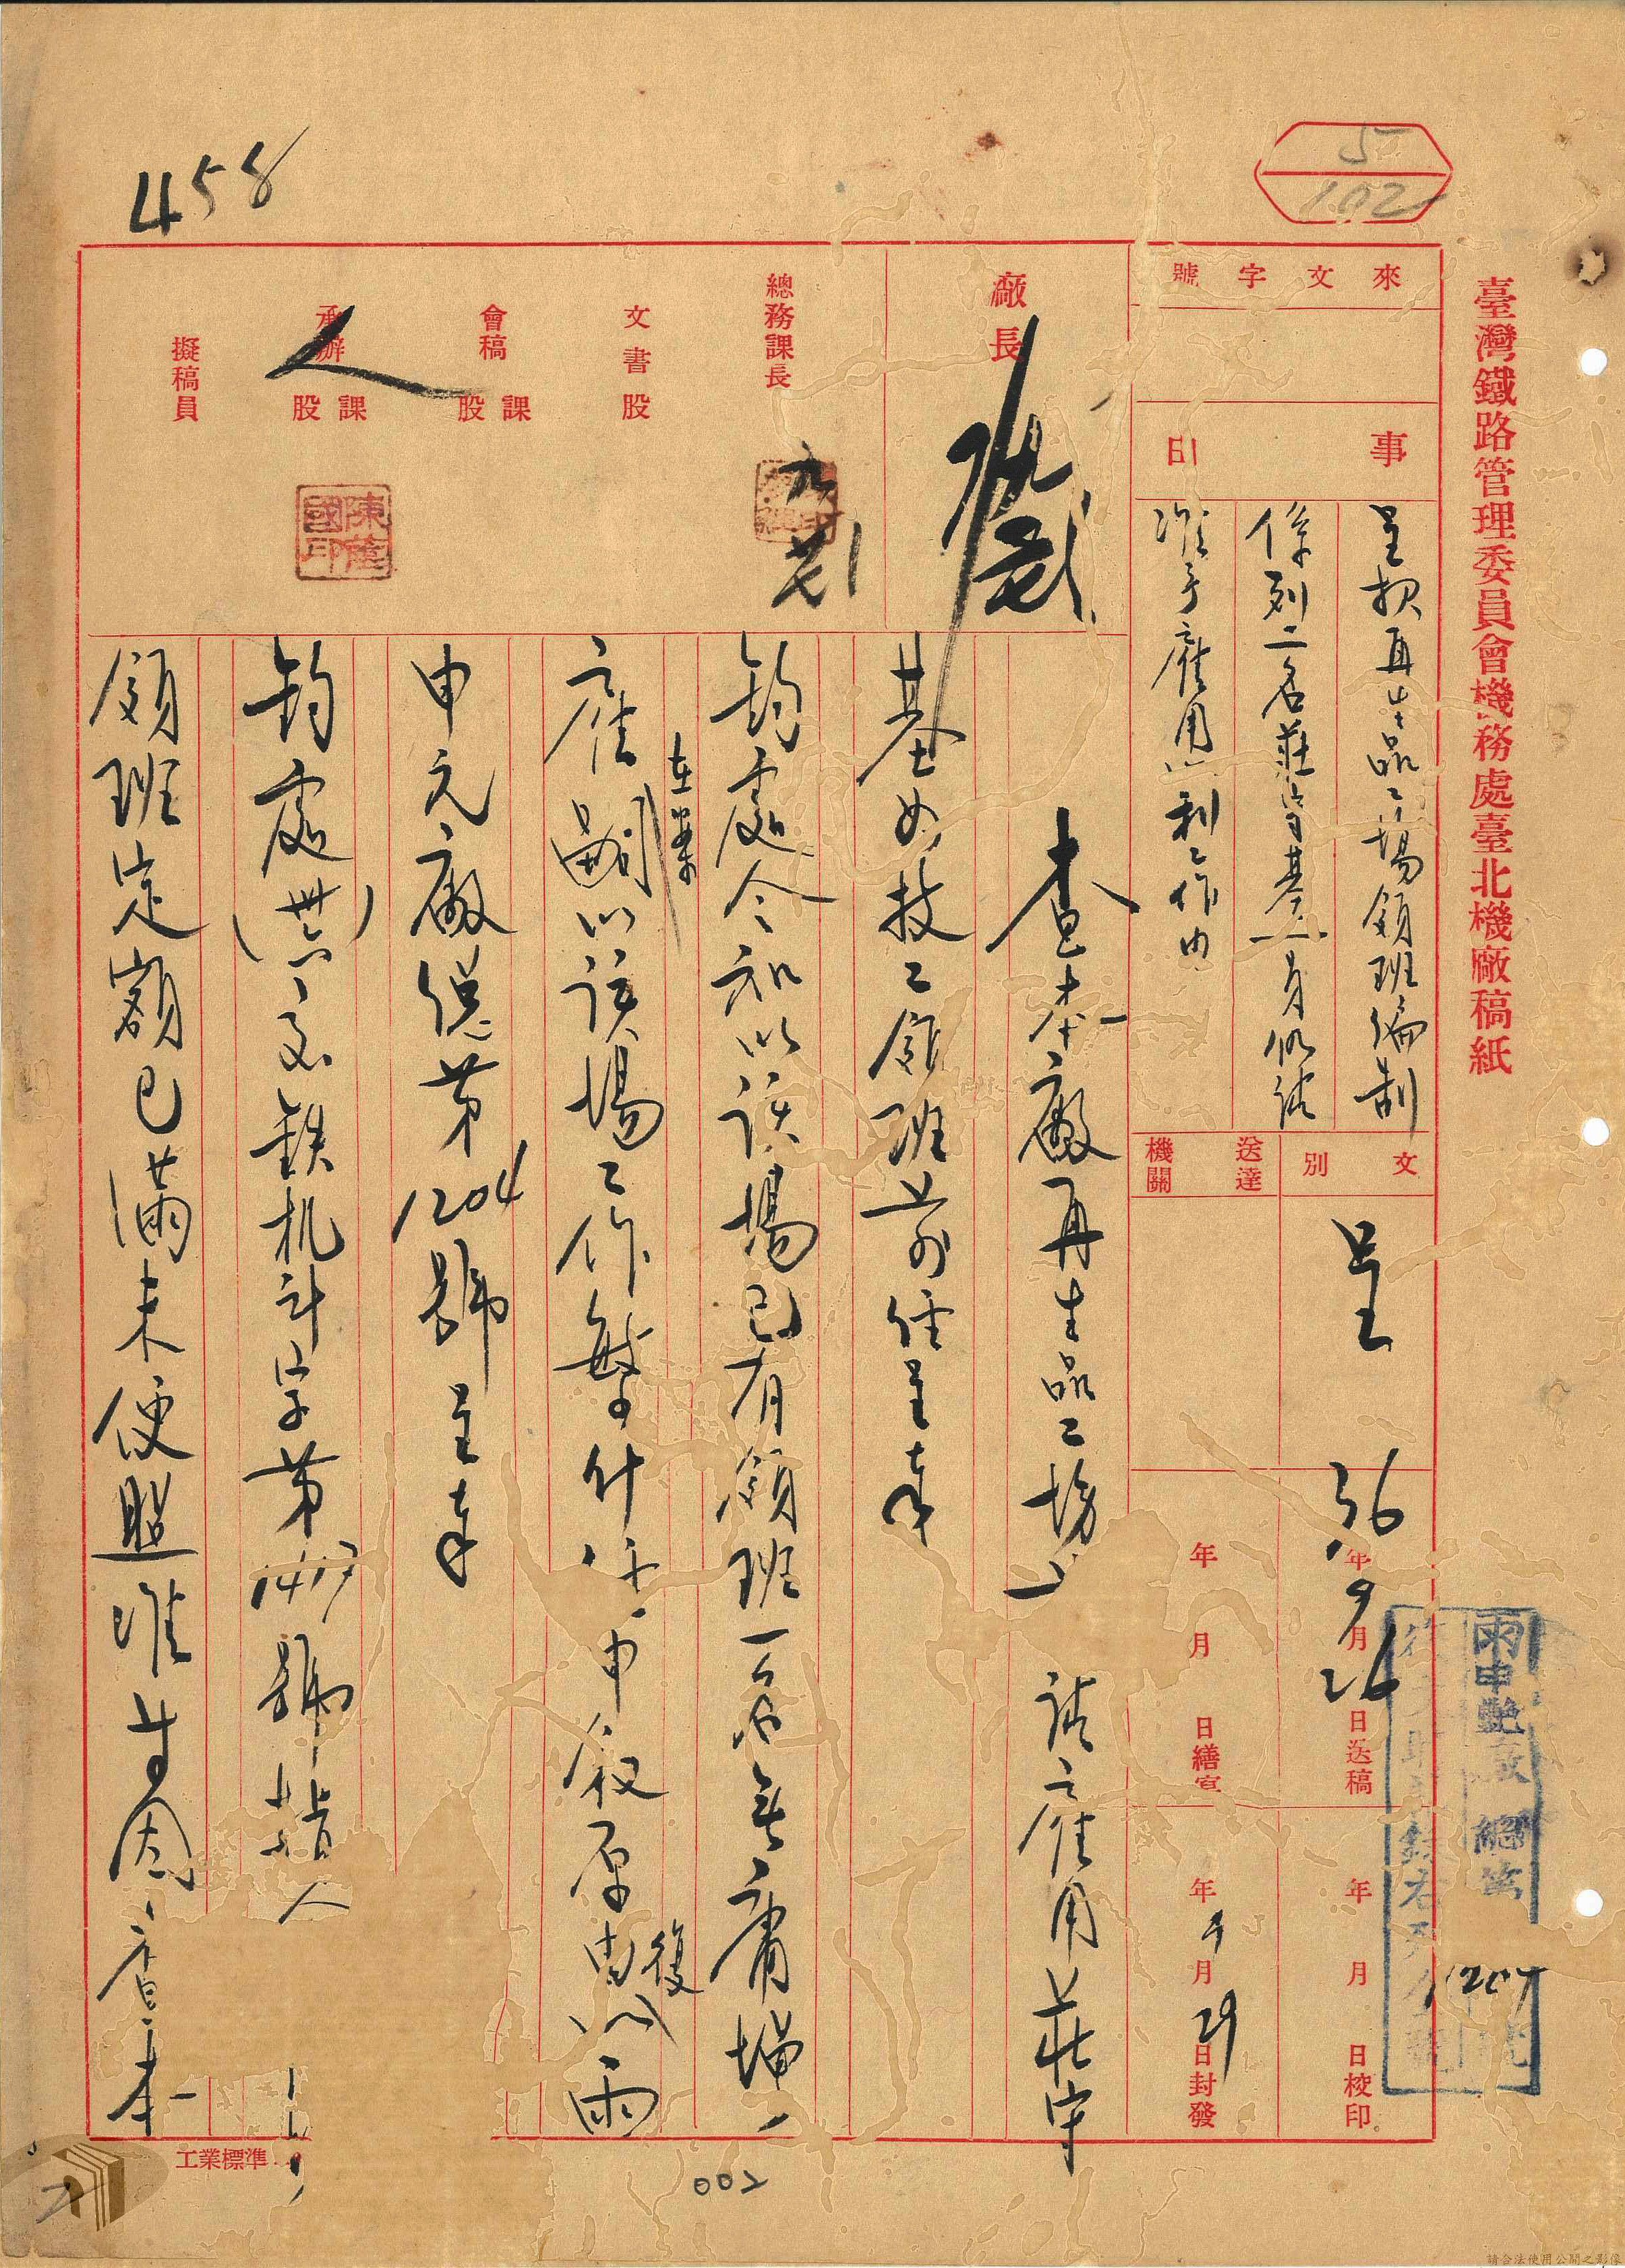 臺灣鐵路管理委員會機務處臺北機廠稿紙
5
102
458
來文字號
事由
呈報再生品工場領班編制
係列二名莊守基一員仍請
准予雇用以利工作由
文別
呈
送達機關
36年9月26日送稿
年月日繕寫
年月日校印
年9月29日封發
雨申艷廠總第1204號
廠長
總務課長
文書股
會稿課股
承辦課股
擬稿員
陳
國印
查本廠再生品工場 請雇用莊守
基為技工領班一節經呈奉
鈞處令知以該場已有領班一名無庸增
雇
在案
以該場工作繁什 申敘原由
復以雨
申元廠總第1204號呈奉
鈞處(卅六)子鉄机計字第1417號指
領班定額已滿未便照准等因查本
工業標準
002
請合法使用公開之影像